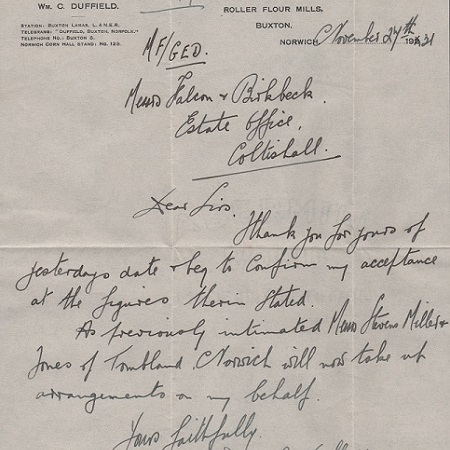 Wm. C. DUFFIELD.
STATION: BUXTON LAMAS, L. & N.E.R.
TELEGRAMS: "DUFFIELD, BUXTON, NORFOLK."
TELEPHONE NO.: BUXTON 3.
NORWICH CORN HALL STAND: NO. 123.
ROLLER FLOUR MILLS,
BUXTON,
NORWICH, November 27th 1931
MF/GED.
Messrs Falcon & Birkbeck.
Estate Office,
Coltishall.
Dear Sirs.
Thank you for yours of
yesterdays date & beg to confirm my acceptance
at the figures therin stated.
As previously intimated Messrs Stevens Miller &
Jones of Tombland. Norwich will now take up
arrangements on my behalf.
Yours faithfully.